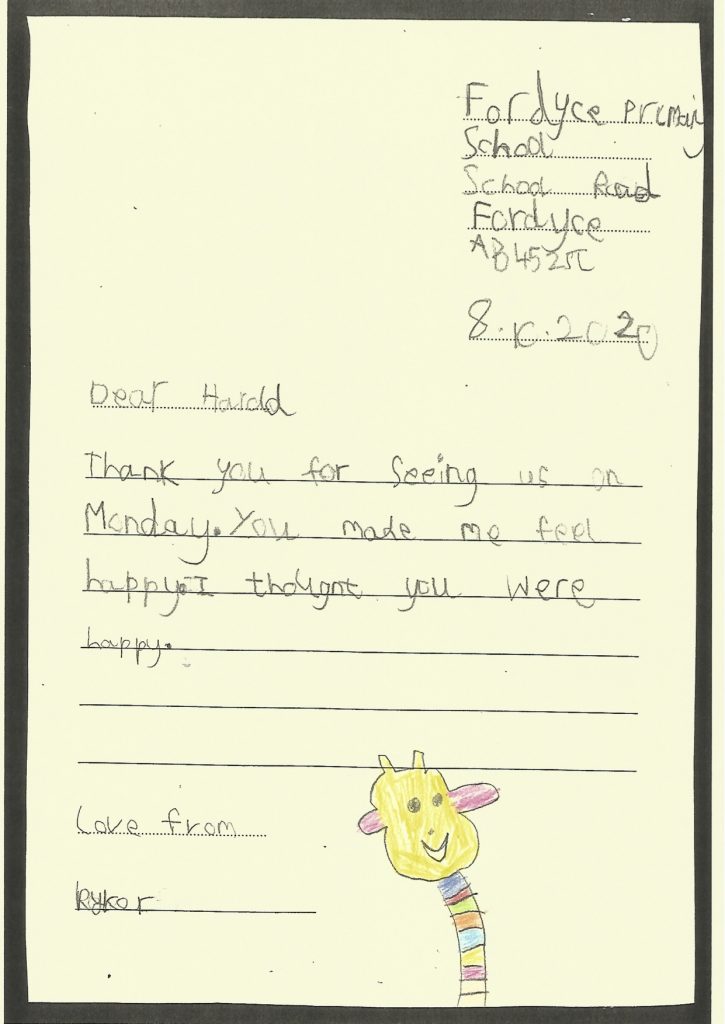 Fordyce Primary
School
School Road
Fordyce
AB45 2SL
8.10.2020
Dear Harold
Thank you for seeing us on
Monday. You made me feel
happy. I thought you were
happy.
Love from
Rykor